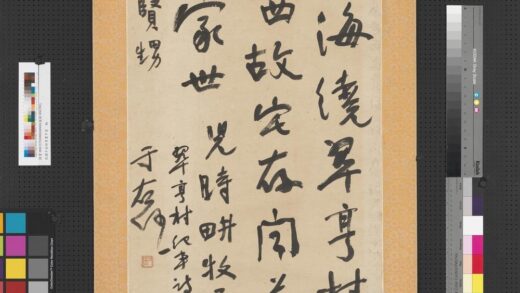 海繞翠亨村
西故宅存聞
家世兒時畊牧
翠亨村紀事詩
賢甥
于右任